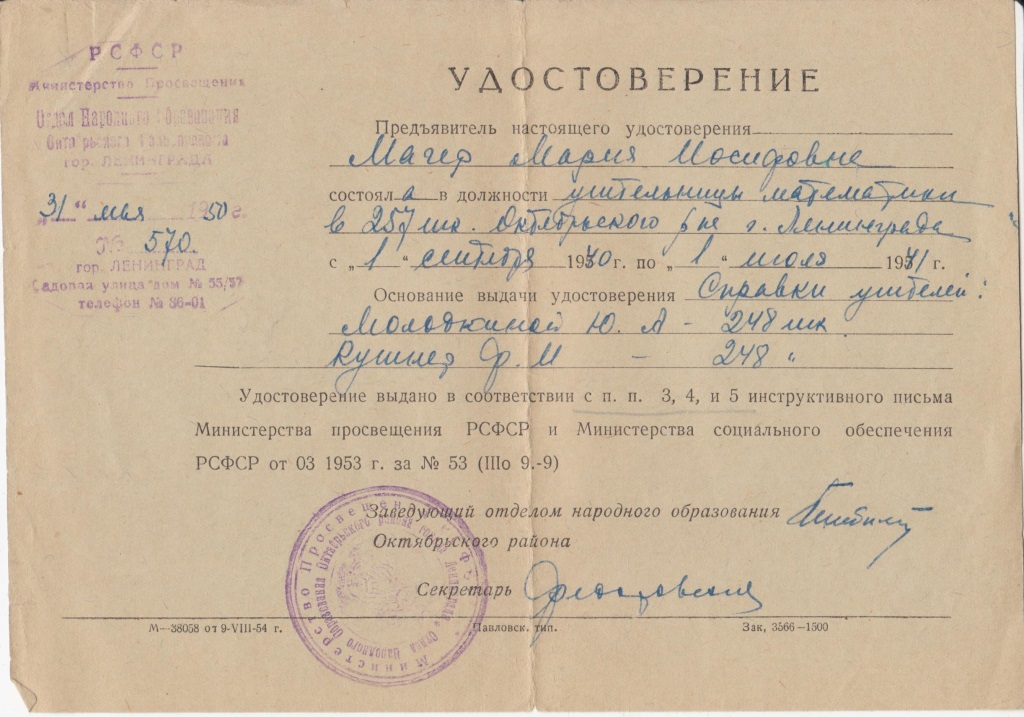 РСФСР
Министерство Просвещения
Отдел Народного Образования
Октябрьского Райисполкома
гор. ЛЕНИНГРАДА
"31" мая
№ 570
гор. ЛЕНИНГРАД
Садовая улица дом № 55/57
телефон № 36-01
УДОСТОВЕРЕНИЕ
Предъявитель настоящего удостоверения
Магер Мария Иосифовне
состояла в должности учительницы математики
в 257 шк. Октябрьского р-на г. Ленинграда
с „1" сентября г. по „1" июля г.
Основание выдачи удостоверения Справки учителей:
Молодкиной Ю. А - 248 шк.
Кушнер Ф. М — 248 "
Удостоверение выдано в соответствии с п. п. 3, 4, и 5 инструктивного письма
Министерства просвещения РСФСР и Министерства социального обеспечения
РСФСР от 03 1953 г. за № 53 (IIIо 9.-9)
Заведующий отделом народного образования
Октябрьского района
Секретарь
Министерство Просвещения РСФСР
Отдел Народного Образования Октябрьского района гор. Ленинграда
М—38058 от 9-VIII-54 г. Павловск. тип. Зак, 3566—1500